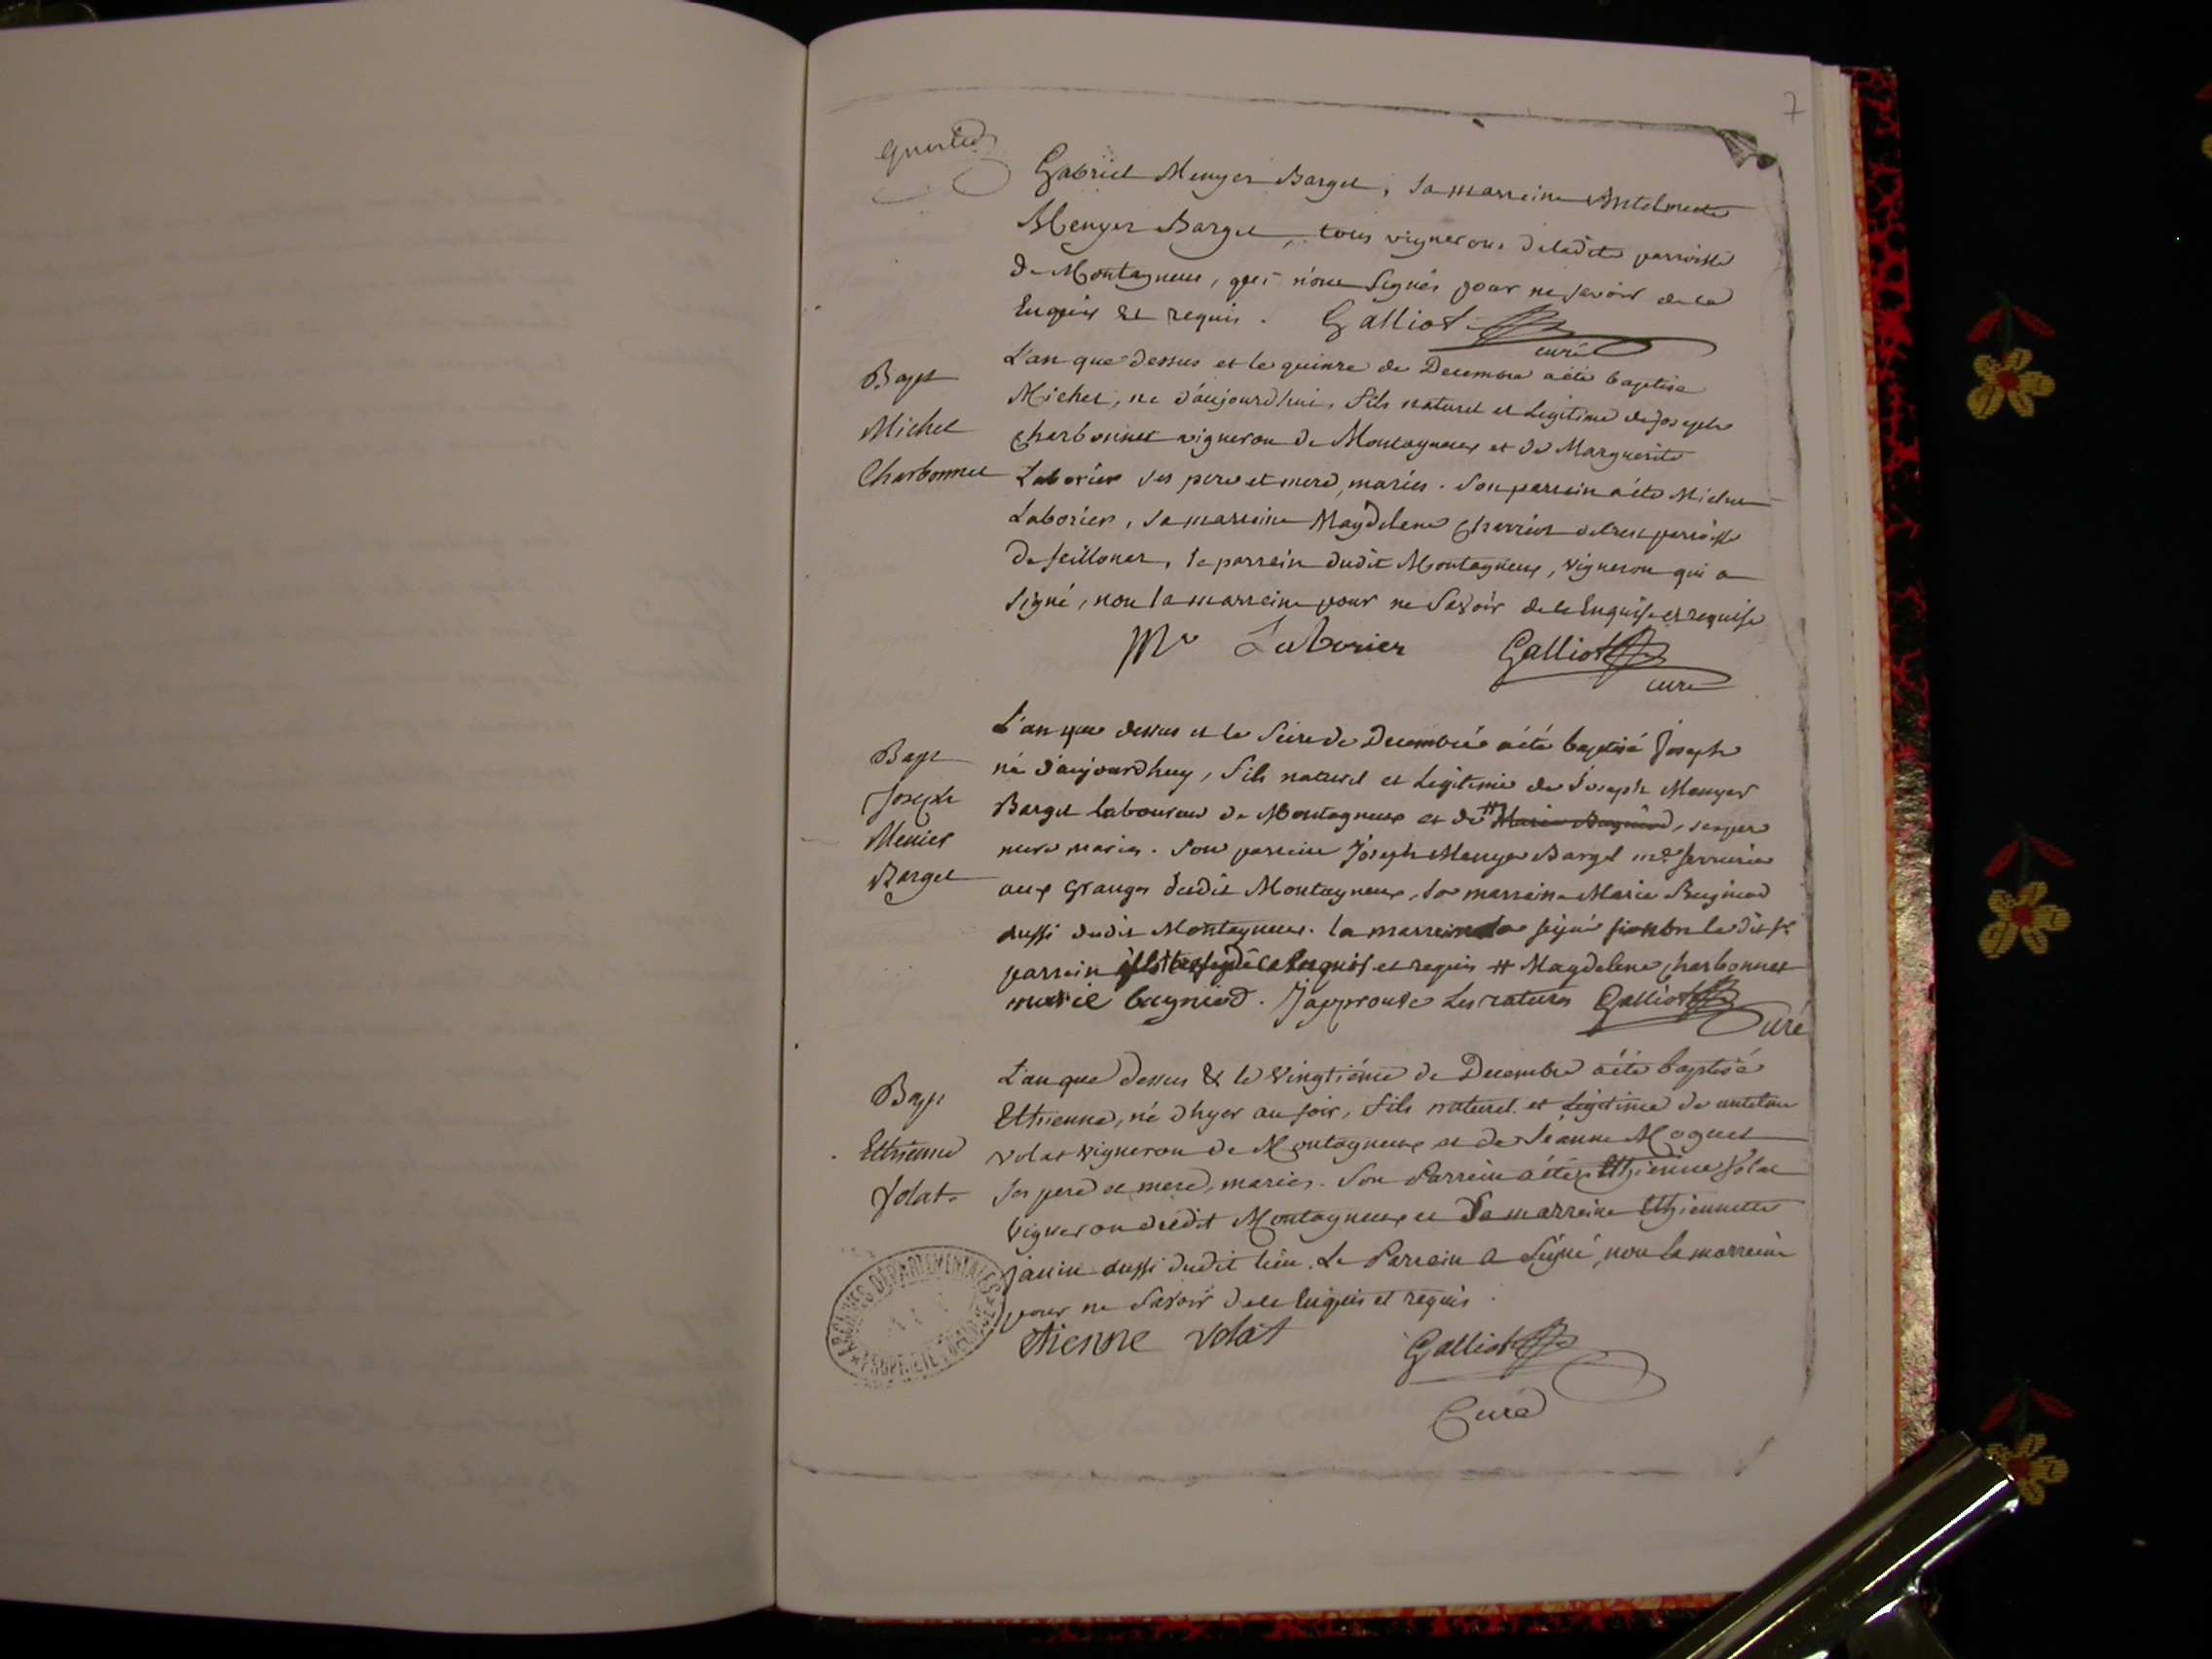 7
Gabriel Menyer Barget, sa marreine Antelmette
Menyer Barget, tous vignerons deladite parroisse
de Montagneux, qui n'ont signés pour ne savoir de ce
Enquis et requis. Galliot
curé
Bapt
Michel
Charbonnet
L'an que dessus et le quinze de Decembre a été baptisé
Michel, né d'aujourdhui, fils naturel et legitime de Joseph
Charbonnet vigneron de Montagneux et de Marguerite
Laborier ses pere et mere, mariés. Son parrein a été Michel
Laborier, sa marreine Magdelene parroisse
de Seillonas, le parrein dudit Montagneux, vigneron qui a
signé, non la marreine pour ne Savoir de ce Enquise et requise
Laborier Galliot
curé
Bapt
Joseph
Menier
Barget
L'an que dessus et le Seize de Decembre a été baptisé Joseph
né d'aujourdhuy, fils naturel et Legitime de Joseph Menyer
Barget laboureur de Montagneux et de # , ses pere
mere mariés. Son parrein Joseph Menyer Barget
aux Granges dudit Montagneux, sa marreine Marie Bugniod
aussi dudit Montagneux. la marreine a signé non le dit
parrein Enquis et requis # Magdelene Charbonnet
marie bugniod. J'approuve Les ratures Galliot
Curé
Bapt
Ethienne
Volat
L'an que dessus & le Vingtiéme de Decembre a été baptisé
Ethienne, né d'hyer au soir, fils naturel et Legitime de antelme
volat vigneron de Montagneux et de Jeanne Moguet
Ses pere et mere, mariés. Son Parrein a été Ethienne Volat
Vigneron dudit Montagneux et Sa marreine Ethiennette
janin aussi dudit lieu. Le Parrein a Signé, non la marreine
pour ne Savoir de ce Enquis et requis.
etienne volat Galliot
Curé
ARCHIVES DÉPARTEMENTALES
PROPRIÉTÉ PUBLIQUE